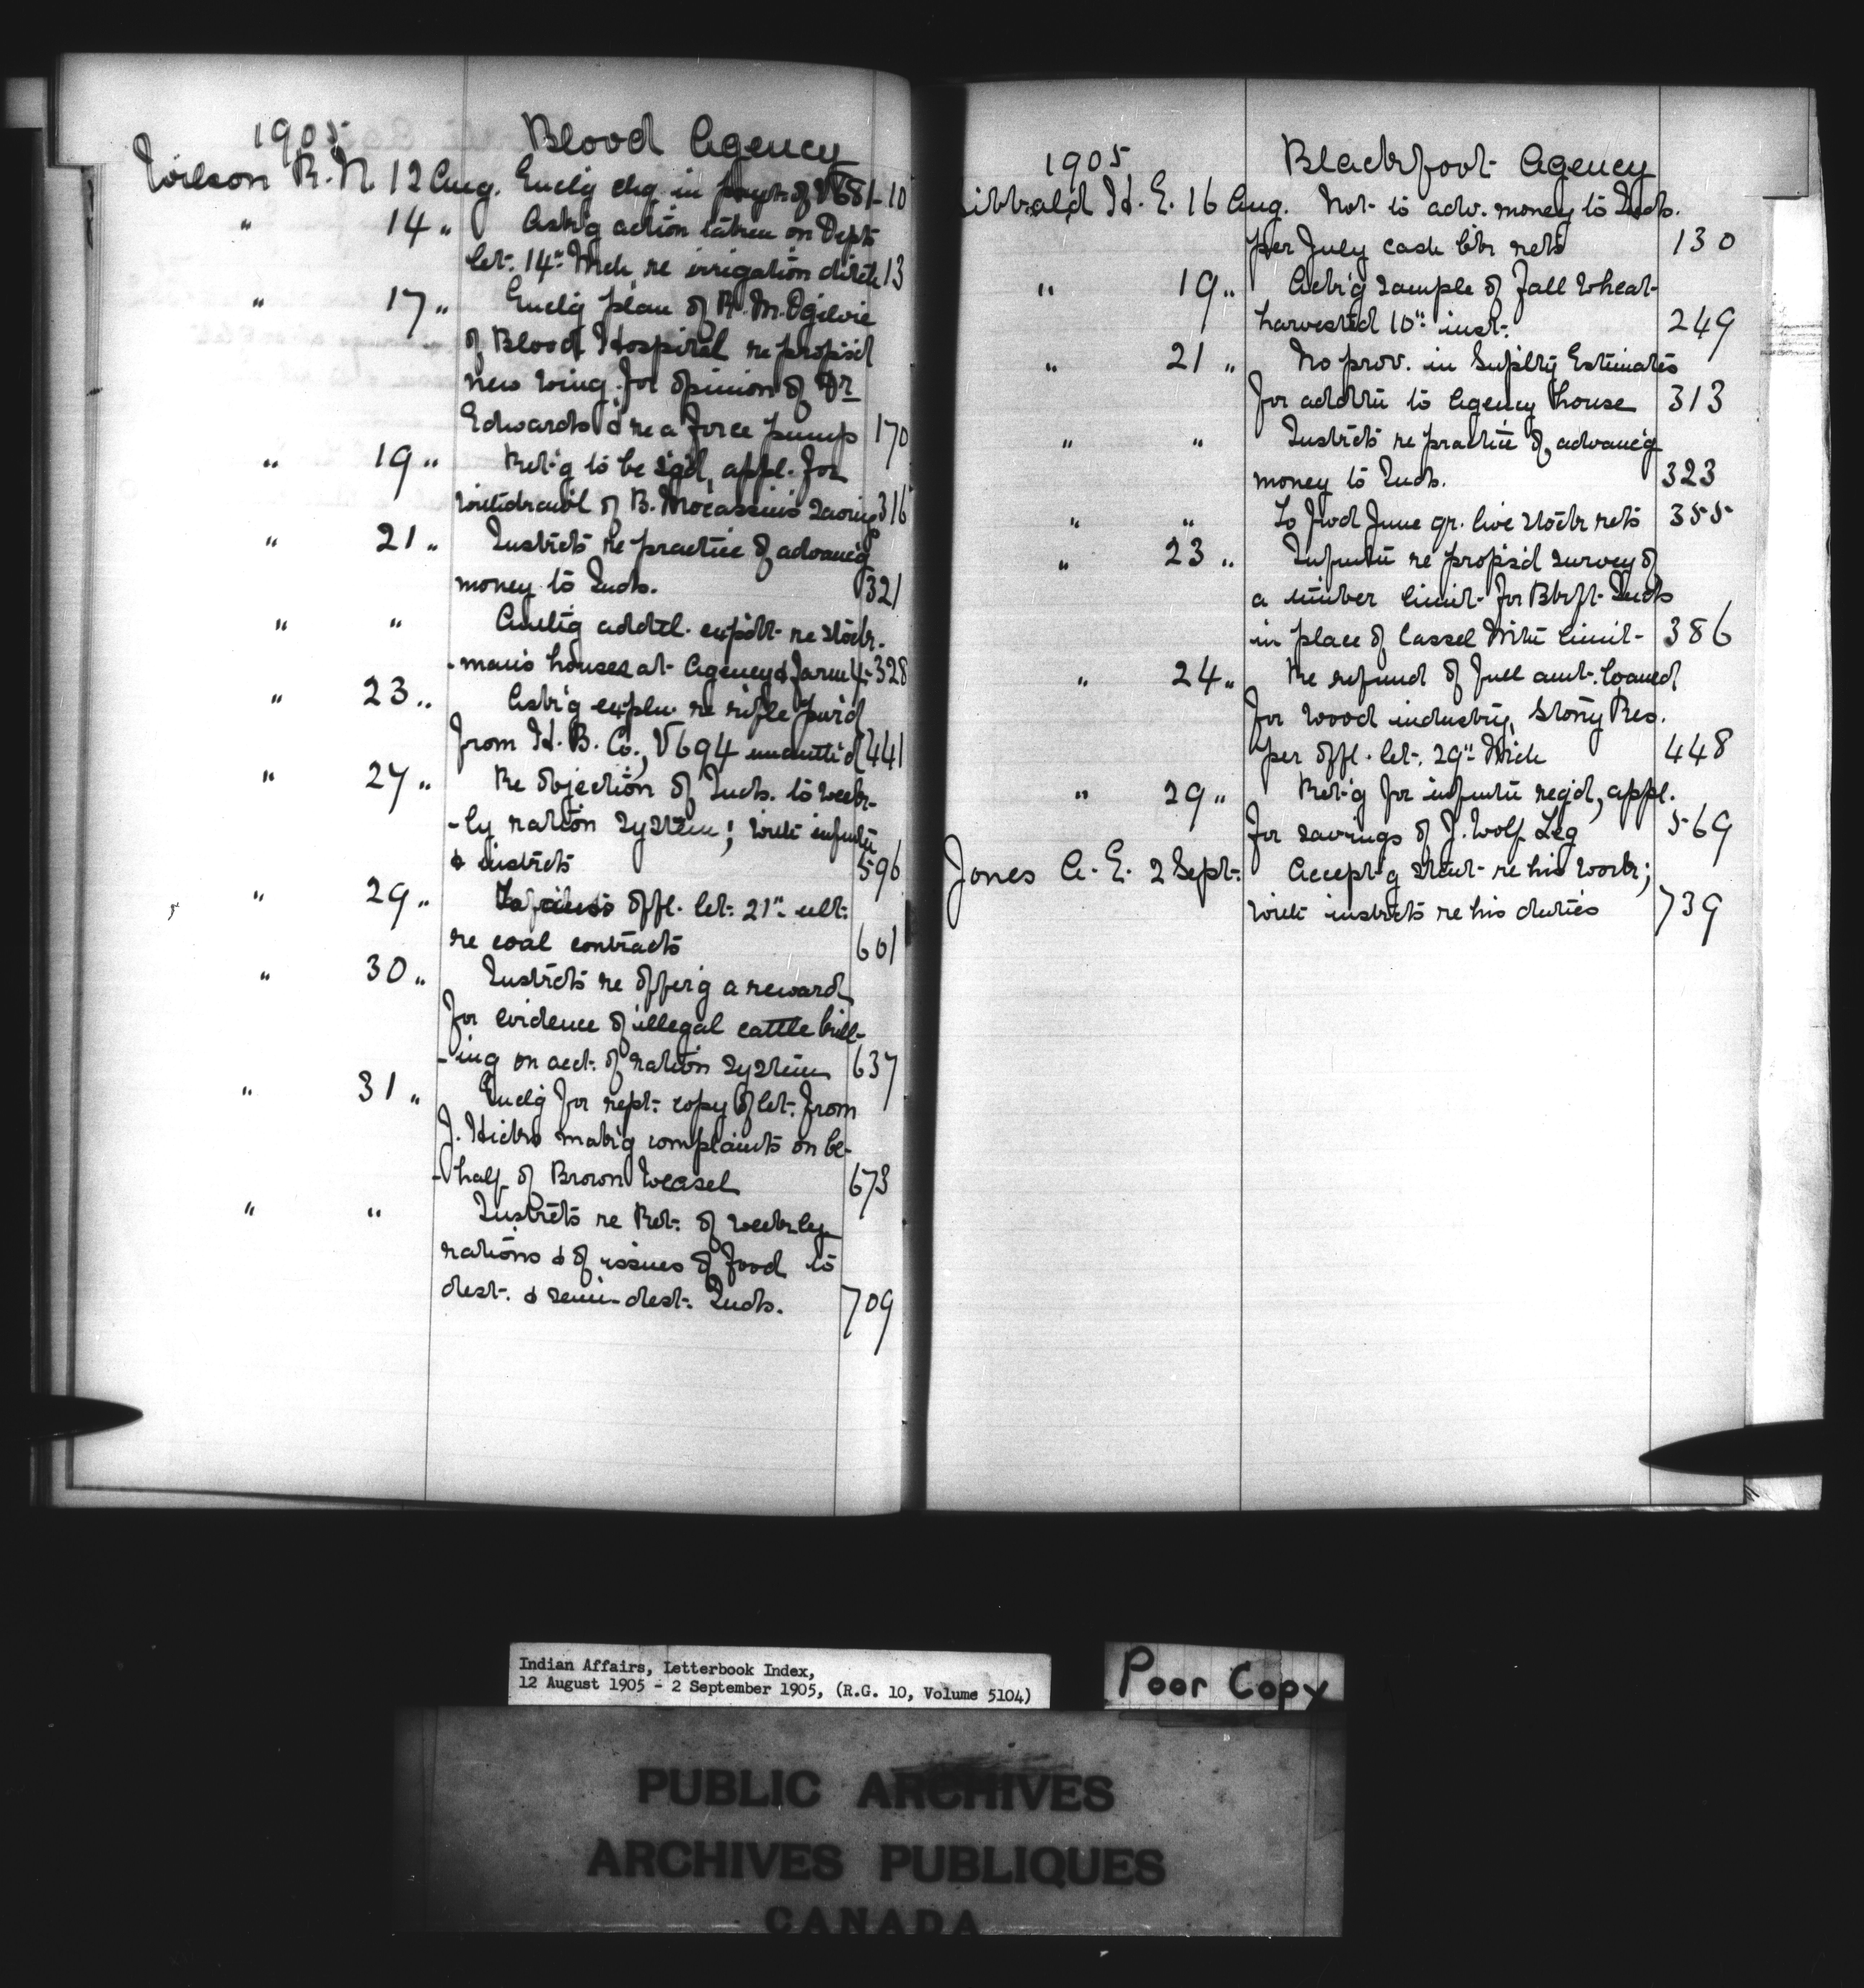 1905 Blood Agency
Wilson R. N. 12 Aug. Enclg chq in paymt of V681 - 10
" 14 " Ask'g action taken on Dept
let. 14" Mch re irrigation ditch 13
" 17 " Enclg plan of R. M. Ogilvie
of Blood Hospital re propsd
new wing for opinion of Dr
Edwards & re a force pump 170
" 19 " Ret'g to be sg'd, appl. for
withdrawl of B. Mocassin's savings 316
" 21 " Instrcts re practice of advanc'g
money to Inds. 321
" " addtl. expdtr re Stock-
-man's houses at Agency & Farm 4 - 328
" 23 " Ask'g expln re rifle purd
from H. B. Co., V694 441
" 27 " Re objection of Inds. to week-
-ly ration system; with infmtn
& instrcts 596
" 29 " offl. let. 21" ult.
re coal contracts 601
" 30 " Instrcts re offer'g a reward
for evidence of illegal cattle kill-
-ing on acct. of ration system 637
" 31 " Enclg for rept. copy of let. from
J. Hicks mak'g complaints on be-
-half of Brown Weasel 673
" " Instrcts re Ret. of weekly
rations & of issues of food to
dest. & semi-dest. Inds. 709
1905 Blackfoot Agency
ibbald H. E. 16 Aug. Not to adv. money to Inds.
per July cash bk rets 130
" 19 " Ack'g sample of Fall Wheat
harvested 10" inst. 249
" 21 " No prov. in Suplty Estimates
for addtn to Agency house 313
" " Instrcts re practice of advanc'g
money to Inds. 323
" " To fwd June qr. live stock rets 355
" 23 " Infmtn re propsd survey of
a timber limit for Blkft Inds
in place of Cassel Mtn limit 386
" 24 " Re refund of full amt. loaned
for wood industry, Stony Res.
per offl. let. 29" Mch 448
" 29 " Ret'g for infmtn reqd, appl.
for savings of J. Wolf Leg 569
Jones A. E. 2 Sept. Accept'g stmt re his work;
with instrcts re his duties 739
Indian Affairs, Letterbook Index,
12 August 1905 - 2 September 1905, (R.G. 10, Volume 5104)
Poor Copy
PUBLIC ARCHIVES
ARCHIVES PUBLIQUES
CANADA